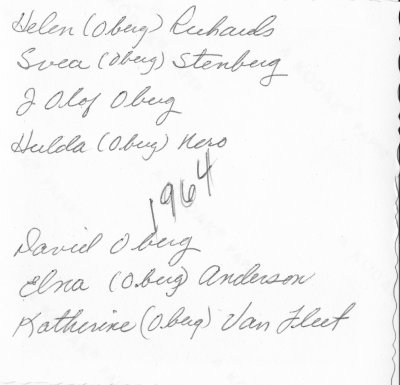 Helen (Oberg) Richards
Svea (Oberg) Stenberg
J Olof Oberg
Hulda (Oberg) Nero
1964
David Oberg
Elna (Oberg) Anderson
Katherine (Oberg) Van Fleet